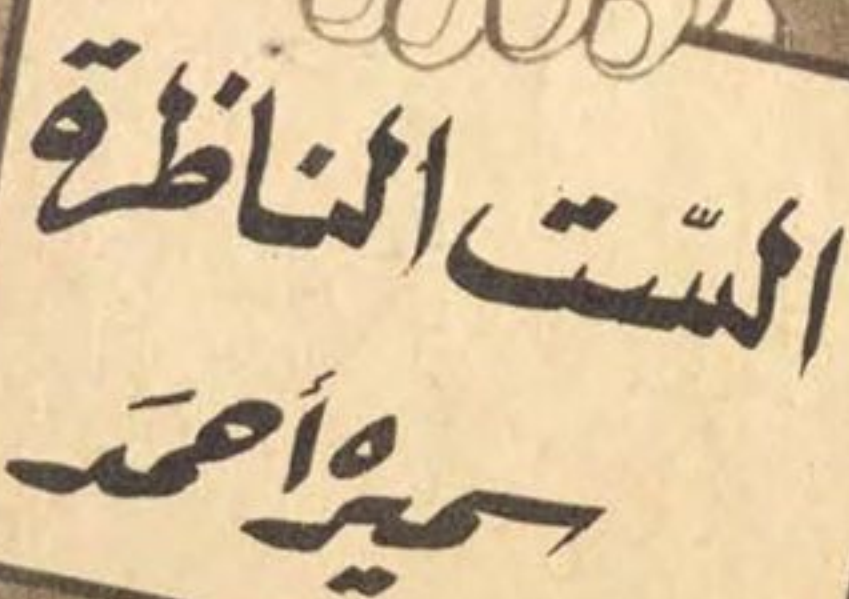 السّت الناظرة
سميره أحمَد